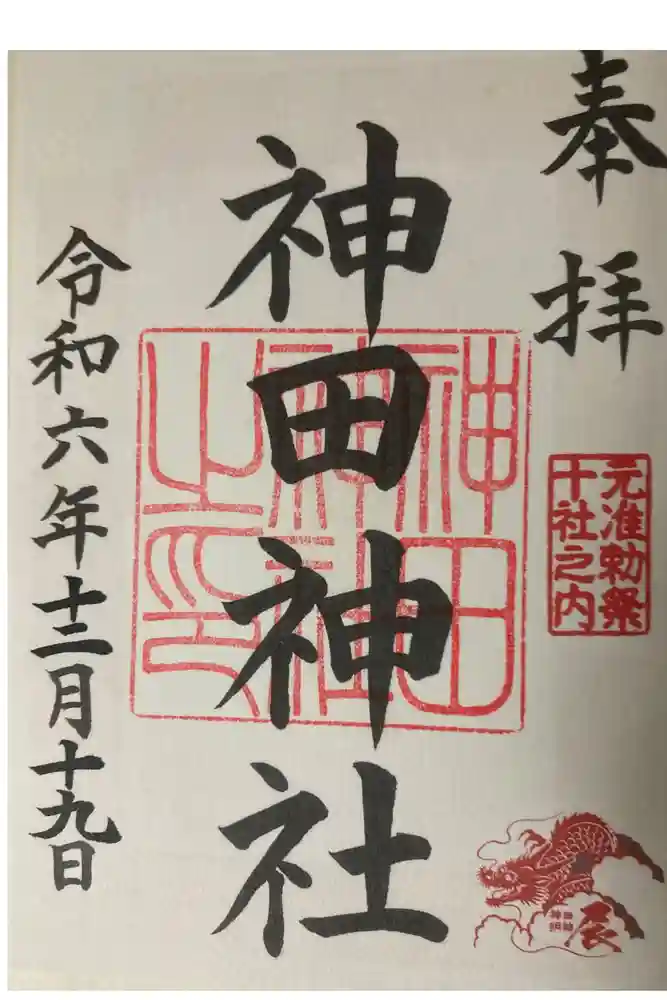 奉拝
元准勅祭
十社之内
神田神社
神田神社之印
令和六年十二月十九日
辰
神田明神